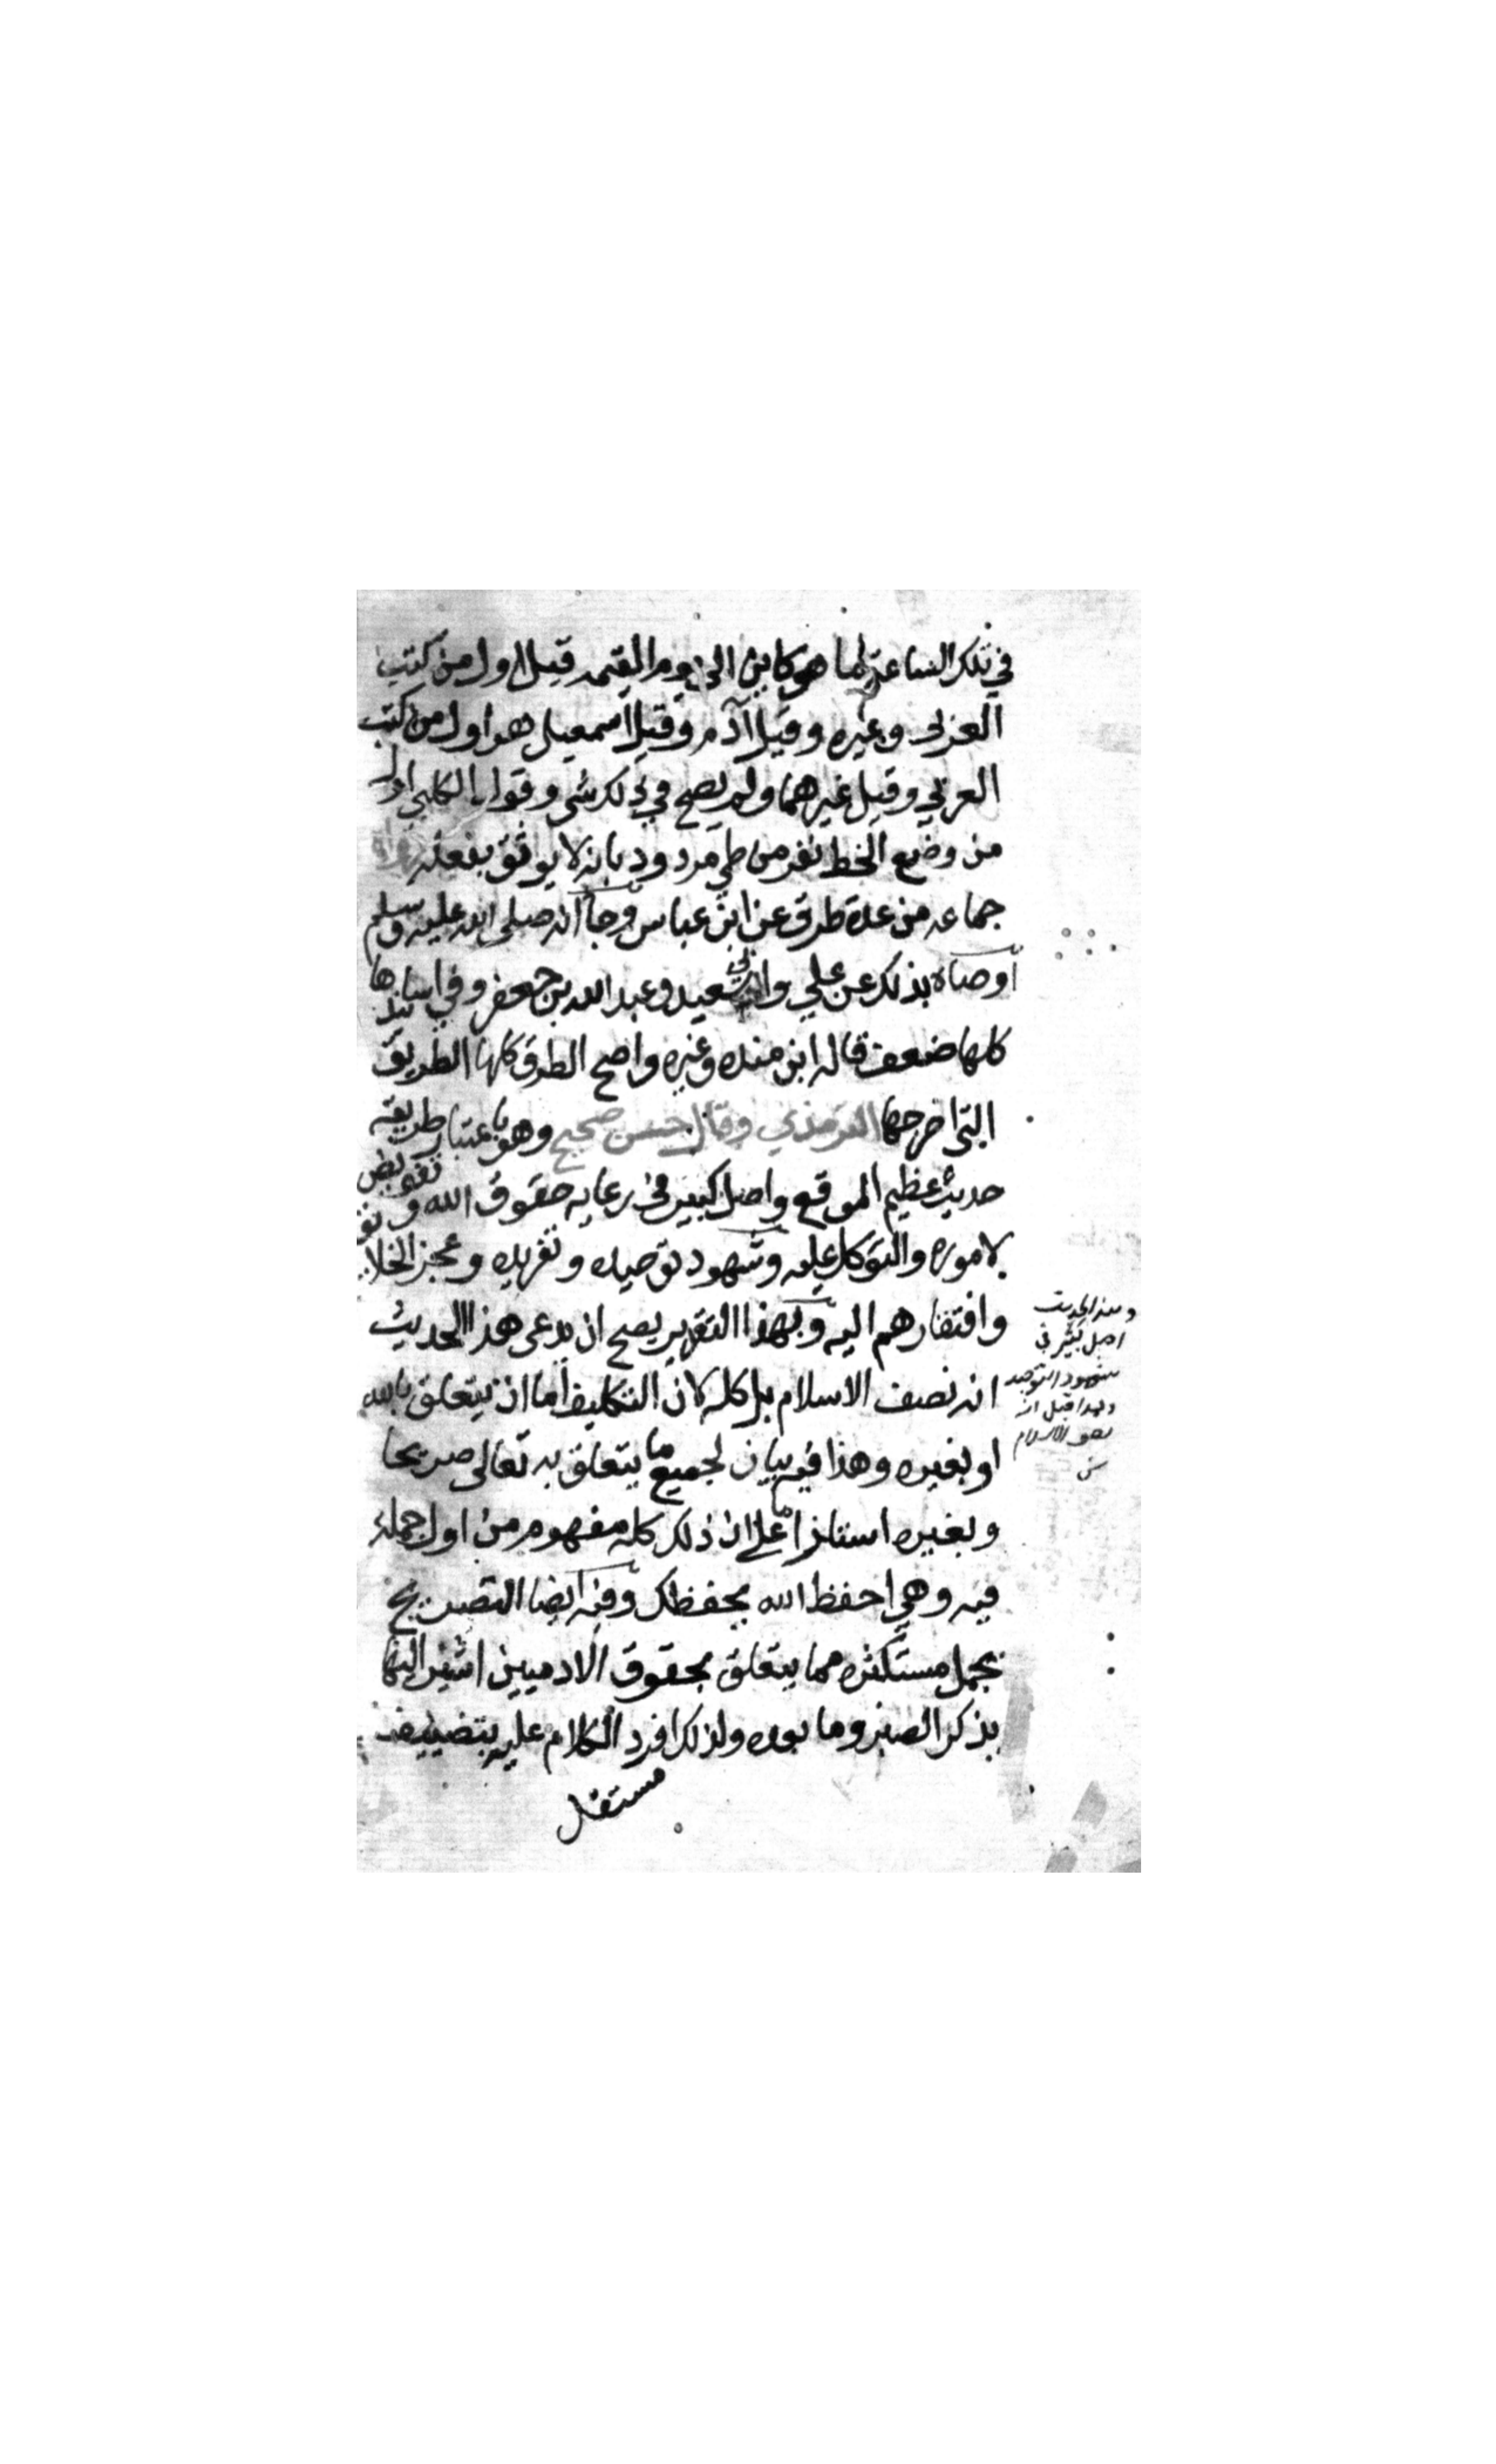 في تلك الساعة لما هو كاين الى يوم القيمه قيل اول من كتب
العربي وغيره وقيل آدم وقيل اسمعيل هو اول من كتب
العربي وقيل غيرهما ولم يصح في ذلك شي وقول الكلبي اول
من وضع الخط نفر من طي مردود بانه لا يوثق بنقله
جماعه من عدة طرق عن ابن عباس وجا انه صلى الله عليه وسلم
اوصاه بذلك عن علي وابي سعيد وعبد الله بن جعفر وفي اسانيدها
كلها ضعف قاله ابن منده وغيره واصح الطرق كلها الطريق
التي اخرجها الترمذي وقال حسن صحيح وهو باعتبار طريقه
حديث عظيم الموقع واصل كبير في رعايه حقوق الله وتفويض
لاموره والتوكل عليه وشهود توحيده وتفريده وعجز الخلا
وافتقارهم اليه وبهذا التقرير يصح ان يدعى هذا الحديث
انه نصف الاسلام بل كله لان التكليف اما ان يتعلق بالله
او بغيره وهذا فيه بيان لجميع ما يتعلق به تعالى صريحا
وبغيره استلزاما على ان ذلك كله مفهوم من اول جملة
فيه وهي احفظ الله يحفظك وفيه ايضا التصريح
بجمل مستكثره مما يتعلق بحقوق الادميين اشير اليها
بذكر الصبر وما بعده ولذلك افرد الكلام عليه بتصنيف
مستقل
وهذا الحديث
اصل كبير في
شهود التوحيد
ولهذا قيل انه
نصف الاسلام